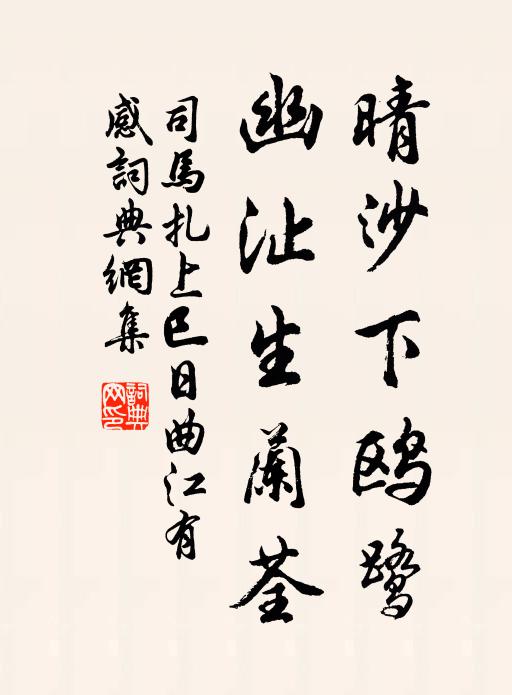 晴沙下鸥鹭
幽沚生蘭荃
司馬扎上巳日曲江有
感詞典網集
詞典
网印